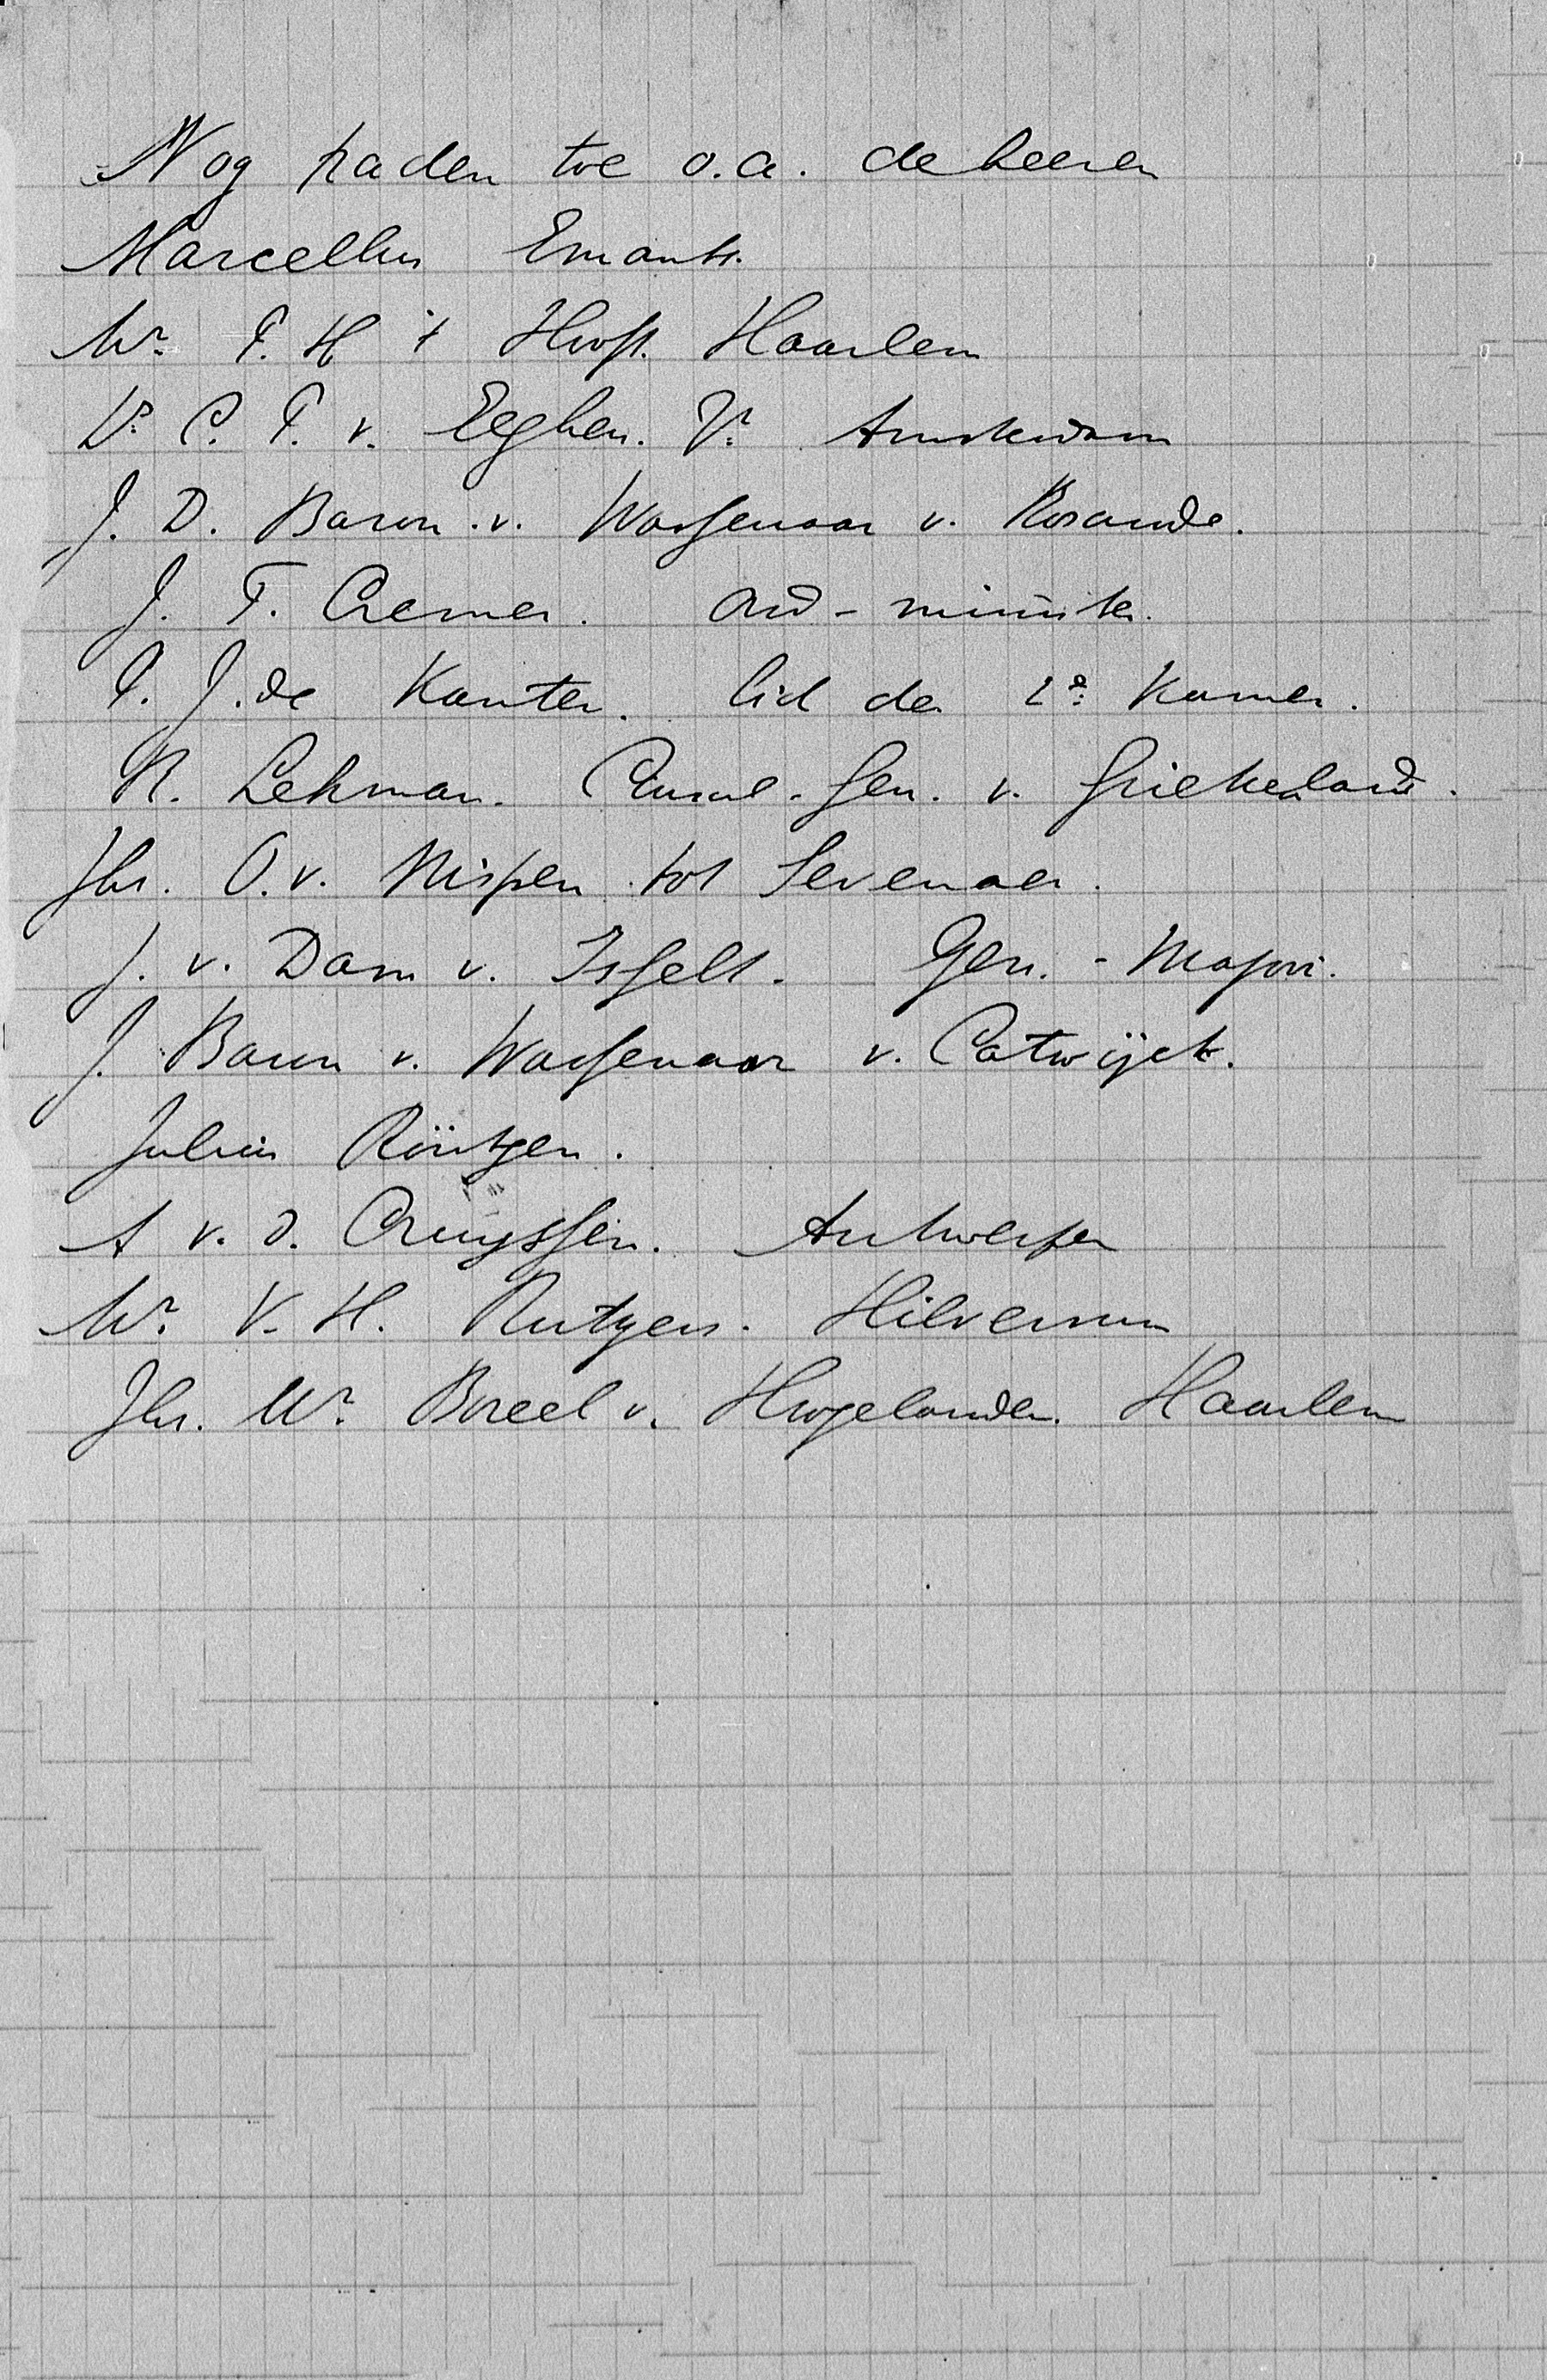 Nog traden toe o.a. de heeren
Marcellus Emants.
Mr. P. H 't Hooft. Haarlem
Dr. C. P. v. Eeghen. Jr. Amsterdam
J. D. Baron v. Wassenaar v. Rosande.
J. T. Cremer. Oud-minister.
P. J. de Kanter. lid der 2e Kamer.
R. Lehman. Consul-Gen. v. Griekenland.
Jhr. O. v. Nispen tot Sevenaer.
J. v. Dam v. Isselt. Gen.-Majoor.
J. Baron v. Wassenaar v. Catwijck.
Julius Röntgen.
A v. d. Cruyssen. Antwerpen
Mr. V. H. Rutgers. Hilversum
Jhr. Mr. Boreel v. Hogelanden. Haarlem